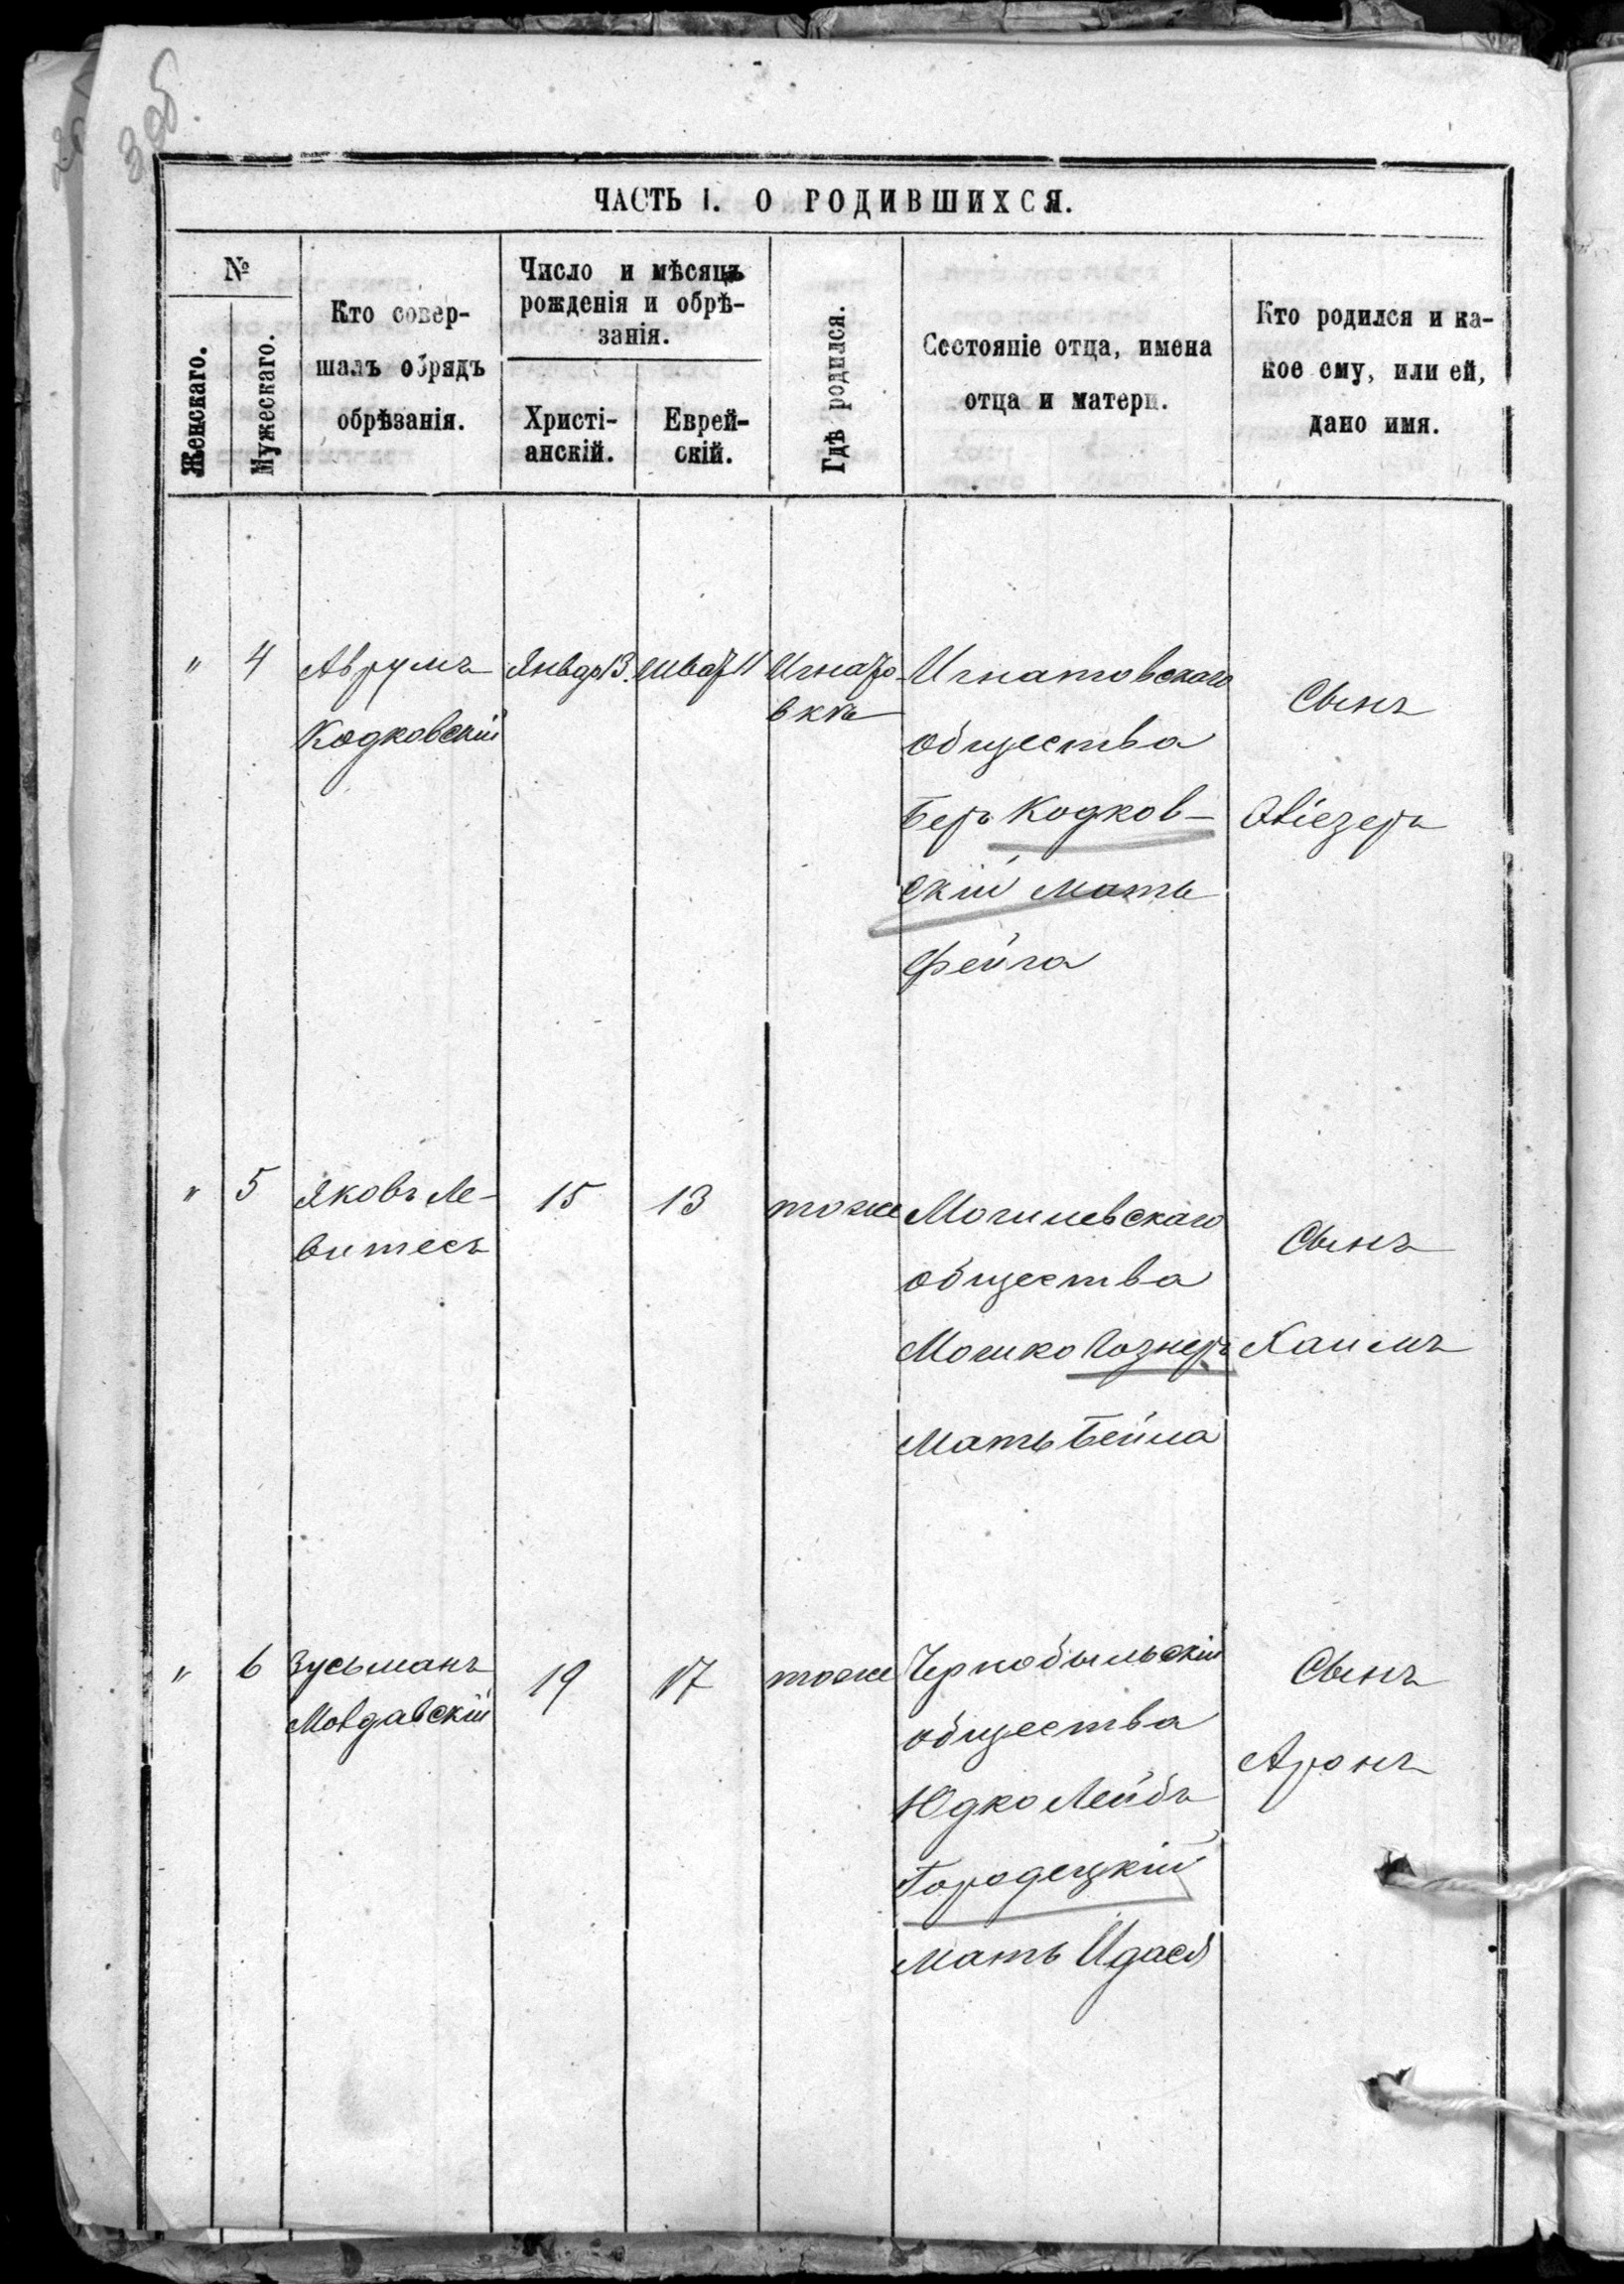 306.
ЧАСТЬ I. О РОДИВШИХСЯ.
№
Женскаго.
Мужескаго.
Кто совер-
шалъ обрядъ
обрѣзанія.
Число и мѣсяцъ
рожденія и обрѣ-
занія.
Христі-
анскій.
Еврей-
скій.
Гдѣ родился.
Состояніе отца, имена
отца и матери.
Кто родился и ка-
кое ему, или ей,
дано имя.
" 4
Аврумъ
Кодковскій
Январ 13.
Шват 11
Игнато-
вкѣ
Игнатовскаго
общества
Беръ Кодков-
скій мать
Фейга
Сынъ
Овіезеръ
" 5
Яковъ Ле-
витесъ
15
13
тоже
Могилевскаго
общества
Мошко Познеръ
Мать Бейла
Сынъ
Хаимъ
" 6
Зусьманъ
Мовдавскій
19
17
тоже
Чернобыльскій
общества
Юдко Лейбъ
Городецкій
мать Идася
Сынъ
Аронъ